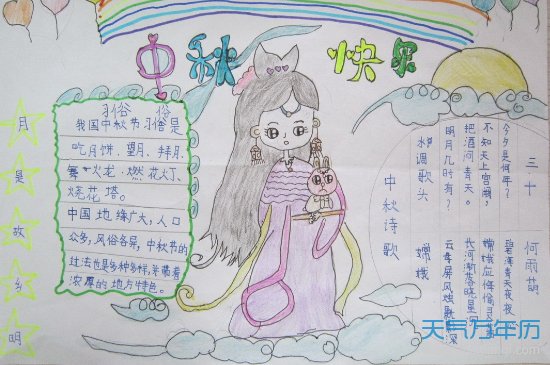 中秋快乐
月是故乡明
习俗 俗
我国中秋节习俗是
吃月饼、望月、拜月
火龙、燃花灯、
烧花塔。
中国地缘广大,人口
众多,风俗各异,中秋节的
过法也是多种多样,并带着
浓厚的地方特色。
中秋诗歌
水调歌头
明月几时有?
把酒问青天。
不知天上宫阙,
今夕是何年?
嫦娥
云母屏风烛影深
长河渐落晓星
嫦娥应悔偷灵
碧海青天夜夜
三十
何雨萌
天气万年历